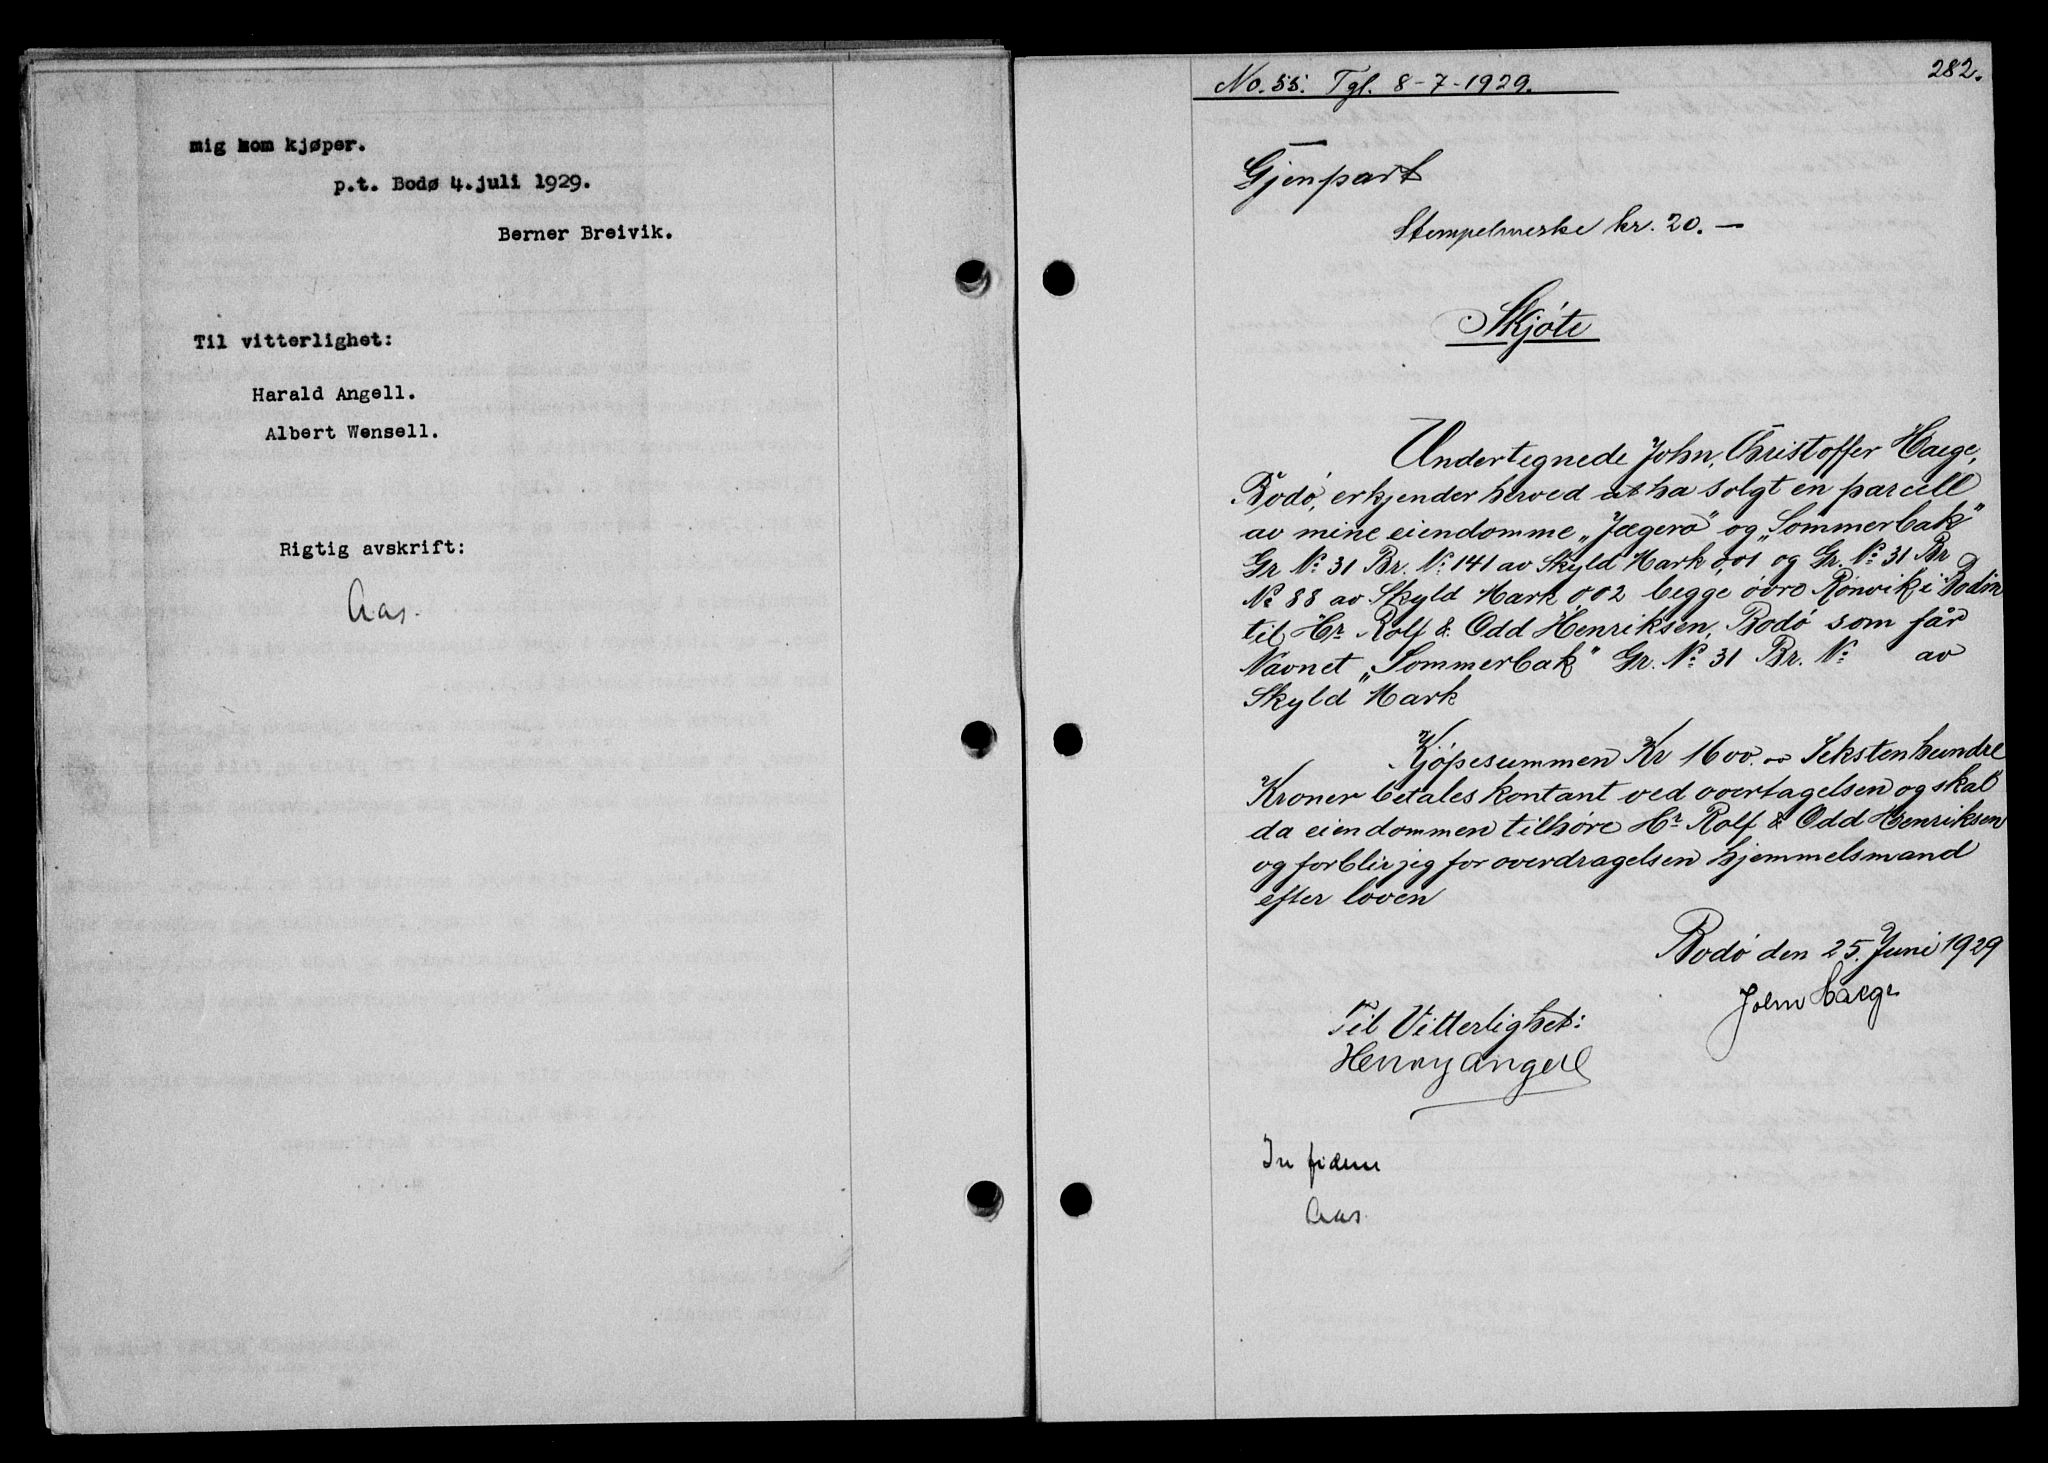 mig som kjøper.
p.t. Bodø 4.juli 1929.
Berner Breivik.
Til vitterlighet:
Harald Angell.
Albert Wensell.
Rigtig avskrift:
Aas.
282.
No. 55. Tgl. 8-7-1929.
Gjenpart
Stempelmerke kr. 20.—
Skjöte
Undertegnede John, Christoffer Haege,
Bodö, erkjender herved at ha solgt en parcell
av mine eiendomme „Jægerö" og „Sommerbak"
Gr No 31 Br. No 141 av Skyld Mark 0,01 og Gr. No 31 Br
No 88 av Skyld Mark 0,02 begge övre Rönvik i Bodin
til Hr Rolf & Odd Henriksen, Bodö som får
Navnet „Sommerbak" Gr. No 31 Br. No av
Skyld Mark
Kjöpesummen Kr 1600.00 Sekstenhundre
Kroner betales kontant ved overtagelsen og skal
da eiendommen tilhöre Hr Rolf & Odd Henriksen
og forblir jeg for overdragelsen hjemmelsmand
efter loven
Bodö den 25. Juni 1929
John Haege
Til Vitterlighet:
Henry Angell
In fidem
Aas.